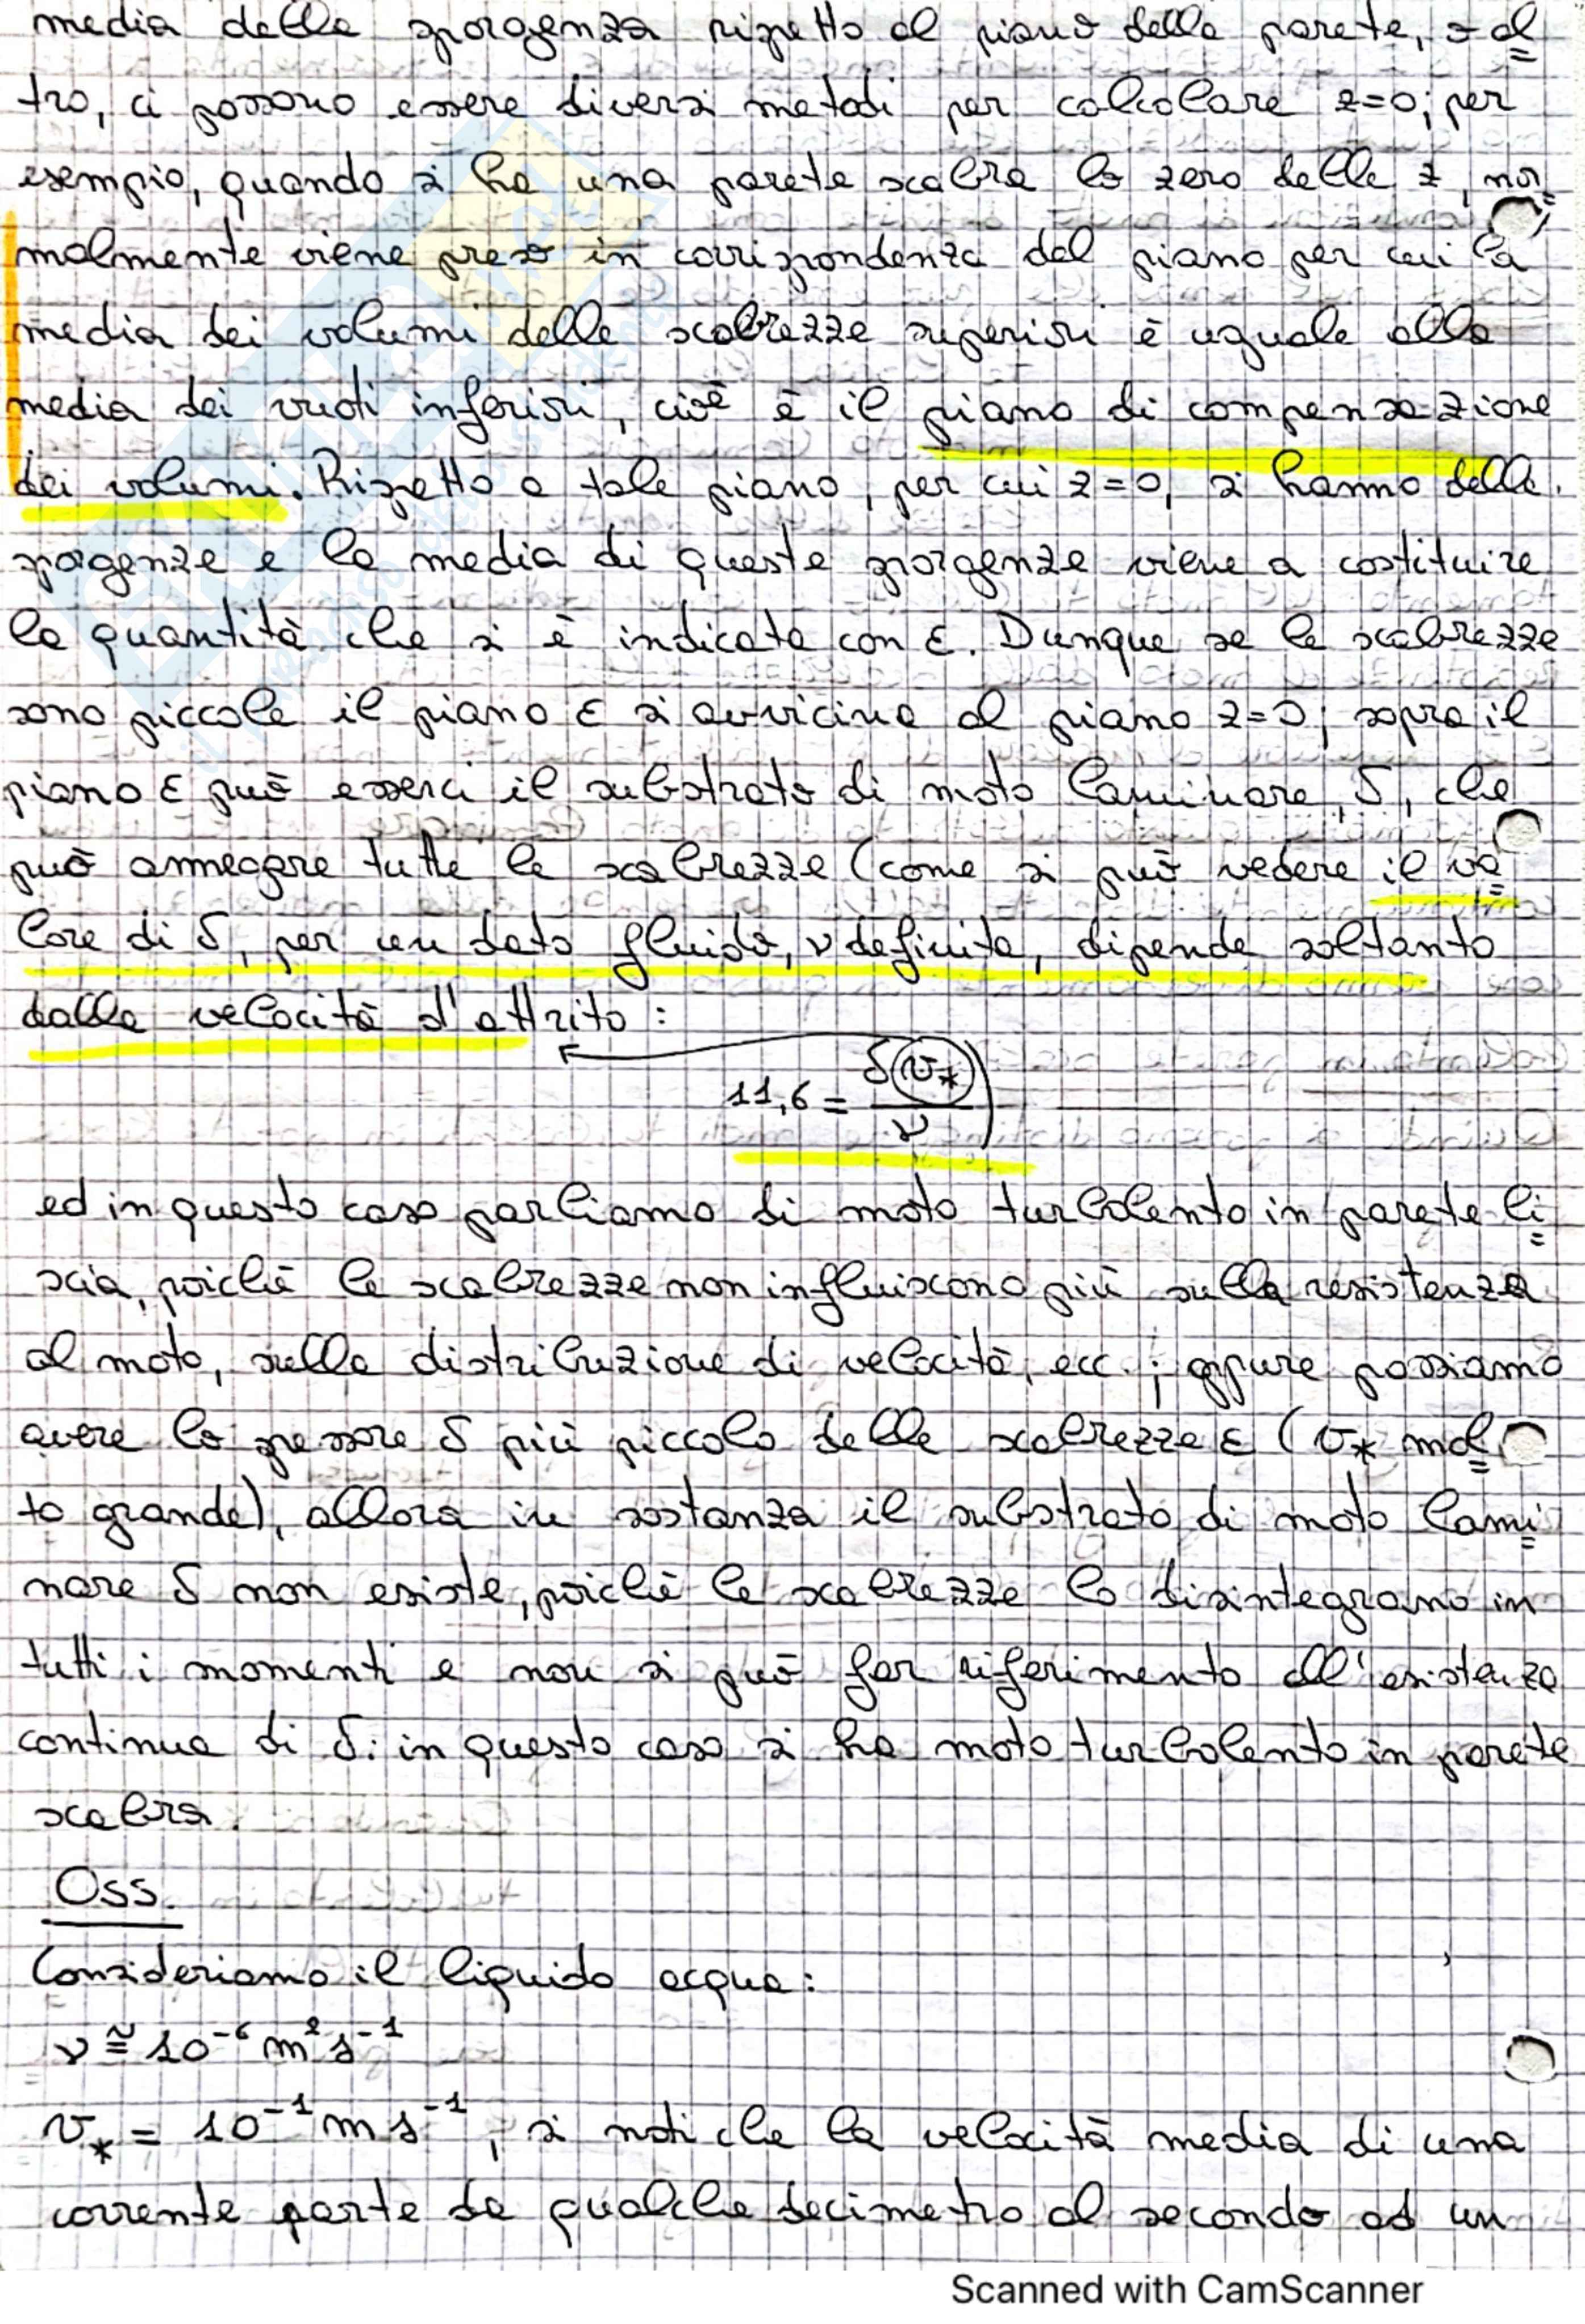 media delle sporgenza rispetto al piano della parete, o al
tro, ci possono essere diversi metodi per calcolare z=0; per
esempio, quando si ha una parete scabra lo zero delle z, nor
malmente viene preso in corrispondenza del piano per cui la
media dei volumi delle scabrezze superiori è uguale alla
media dei vuoti inferiori, cioè è il piano di compensazione
dei volumi. Rispetto a tale piano, per cui z=0, si hanno delle
sporgenze e la media di queste sporgenze viene a costituire
la quantità che si è indicata con ε. Dunque se le scabrezze
sono piccole il piano ε si avvicina al piano z=0; sopra il
piano ε può esserci il substrato di moto laminare, δ, che
può annegare tutte le scabrezze (come si può vedere il va
lore di δ, per un dato fluido, ν definita, dipende soltanto
dalla velocità d'attrito:
11,6 = δ v* / ν )
ed in questo caso parliamo di moto turbolento in parete li
scia, poiché le scabrezze non influiscono più sulla resistenza
al moto, sulla distribuzione di velocità, ecc.; oppure possiamo
avere lo spessore δ più piccolo delle scabrezze ε (v* mol
to grande), allora in sostanza il substrato di moto lami
nare δ non esiste, poiché le scabrezze lo disintegrano in
tutti i momenti e non si può far riferimento all'esistenza
continua di δ: in questo caso si ha moto turbolento in parete
scabra.
Oss.
Consideriamo il liquido acqua:
ν ≅ 10⁻⁶ m² s⁻¹
v* = 10⁻¹ m s⁻¹, si noti che la velocità media di una
corrente parte da qualche decimetro al secondo ad un
Scanned with CamScanner